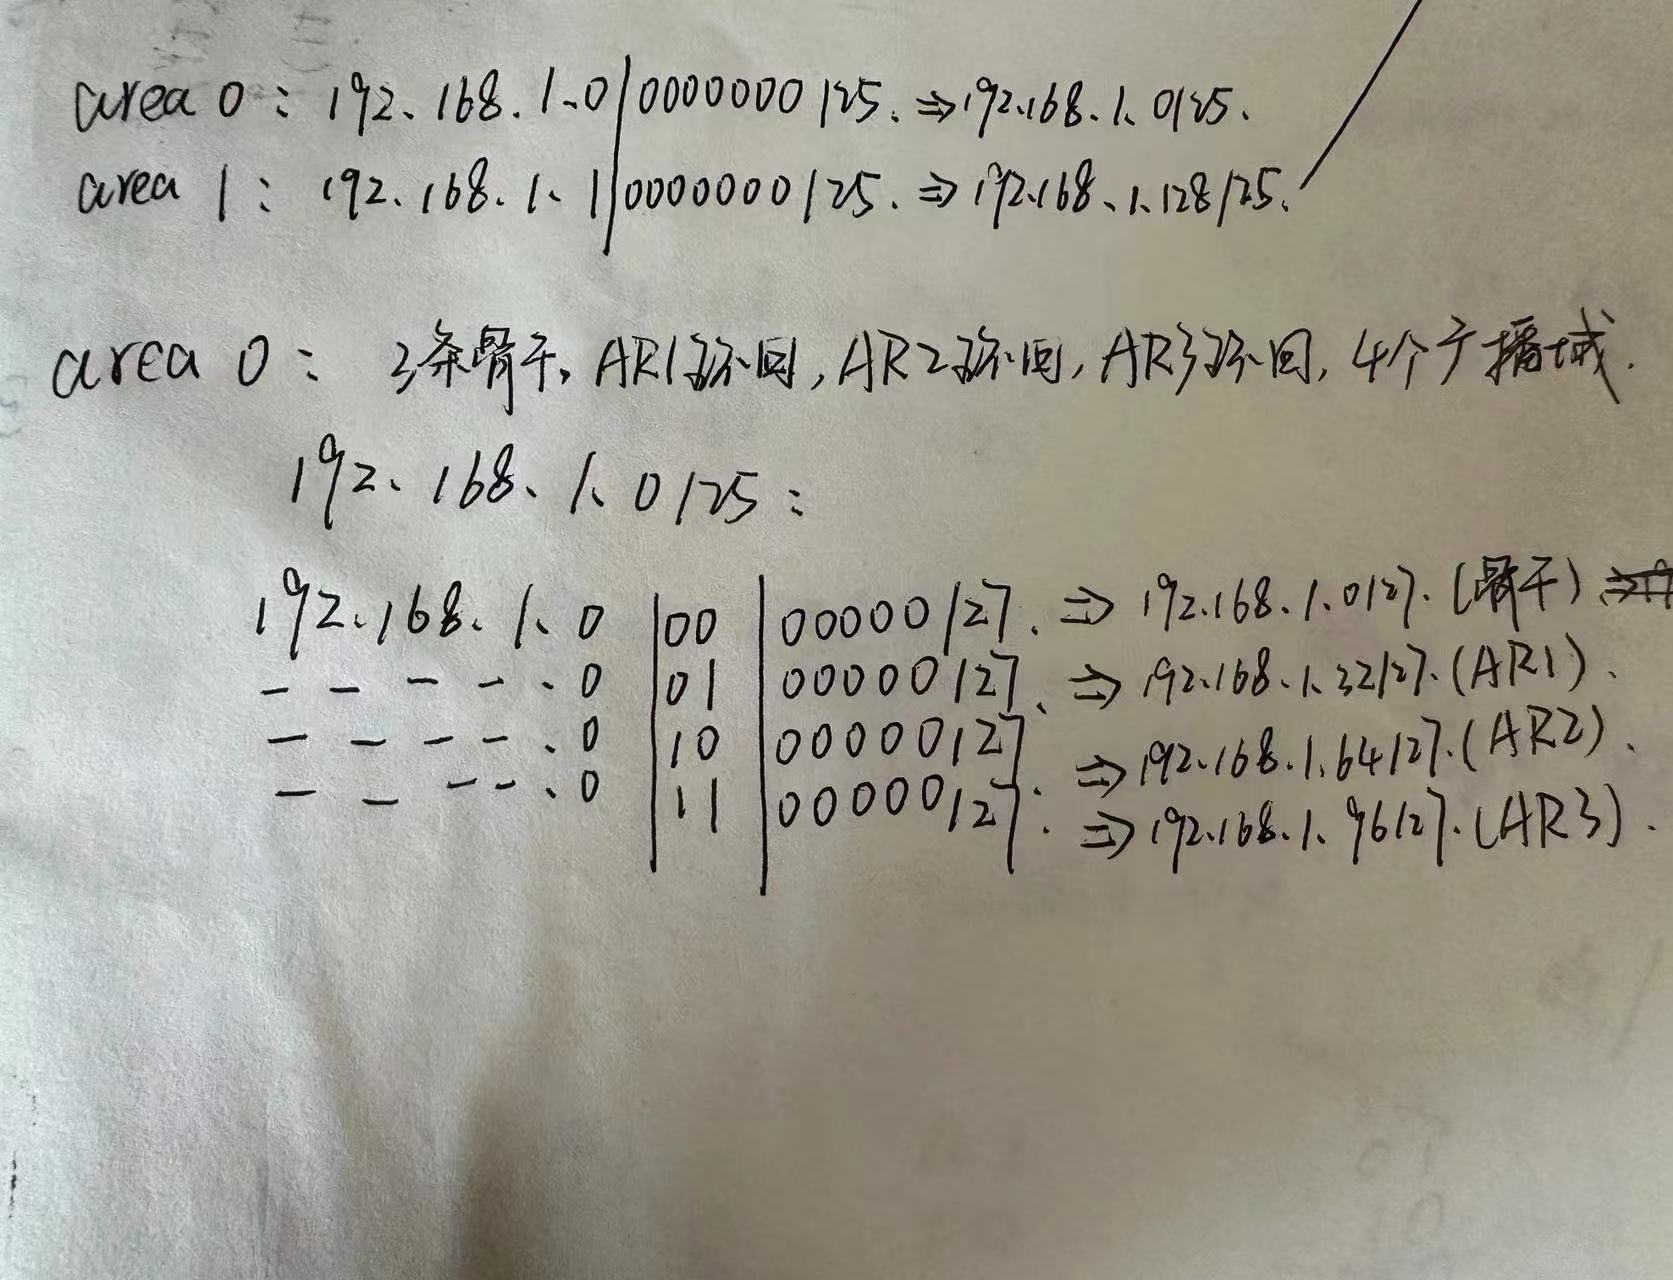 area 0: 192.168.1.0|0000000/25. ⇒192.168.1.0/25.
area 1: 192.168.1.1|0000000/25. ⇒192.168.1.128/25.
area 0: 3条骨干, AR1环回, AR2环回, AR3环回, 4个广播域.
192.168.1.0/25:
192.168.1.0|00|00000/27. ⇒ 192.168.1.0/27.(骨干)
----.0|01|00000/27. ⇒ 192.168.1.32/27.(AR1).
----.0|10|00000/27 ⇒192.168.1.64/27.(AR2).
----.0|11|00000/27. ⇒192.168.1.96/27.(AR3).